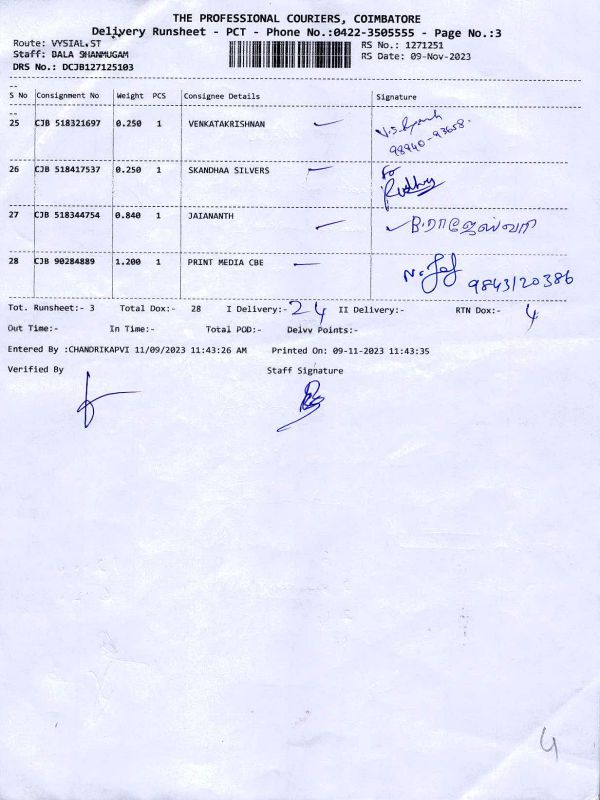 THE PROFESSIONAL COURIERS, COIMBATORE
Delivery Runsheet - PCT - Phone No.:0422-3505555 - Page No.:3
Route: VYSIAL.ST RS No.: 1271251
Staff: BALA SHANMUGAM RS Date: 09-Nov-2023
DRS No.: DCJB127125103
S No Consignment No Weight PCS Consignee Details Signature
25 CJB 518321697 0.250 1 VENKATAKRISHNAN
98940-93658.
26 CJB 518417537 0.250 1 SKANDHAA SILVERS for
27 CJB 518344754 0.840 1 JAIANANTH B.ராஜேஸ்வரி
28 CJB 90284889 1.200 1 PRINT MEDIA CBE 9843120386
Tot. Runsheet:- 3 Total Dox:- 28 I Delivery:- 24 II Delivery:- RTN Dox:- 4
Out Time:- In Time:- Total POD:- Delvv Points:-
Entered By :CHANDRIKAPVI 11/09/2023 11:43:26 AM Printed On: 09-11-2023 11:43:35
Verified By Staff Signature
4